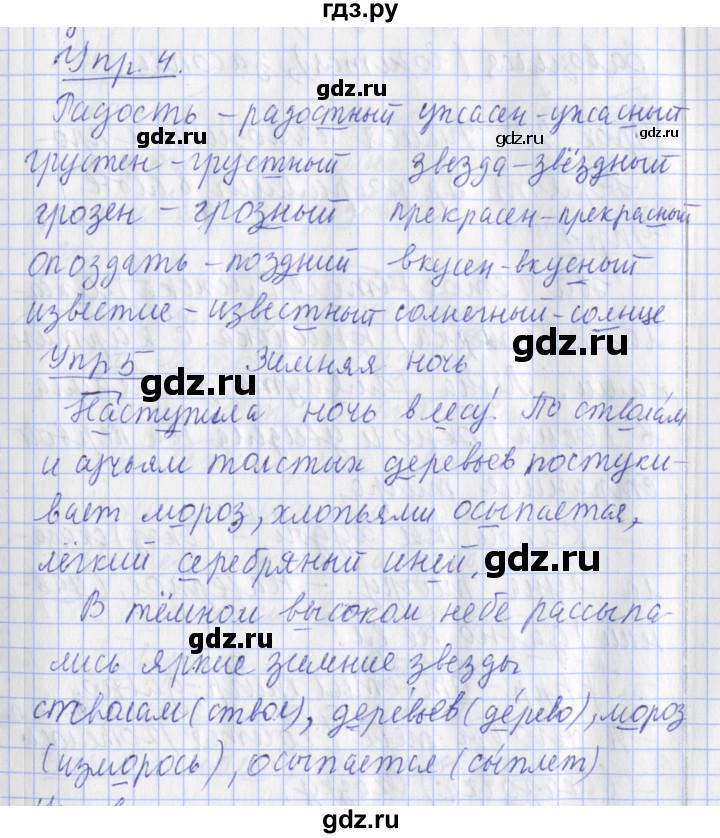 гдз.ру
Упр. 4.
Радость – радостный ужасен – ужасный
грустен – грустный звезда – звёздный
грозен – грозный прекрасен – прекрасный
опоздать – поздний вкусен – вкусный
известие – известный солнечный – солнце
Упр 5 Зимняя ночь
Наступила ночь в лесу. По стволам
и сучьям толстых деревьев постуки-
вает мороз, хлопьями осыпается,
лёгкий серебряный иней.
В тёмном высоком небе рассыпа-
лись яркие зимние звезды
стволам (ствол), деревьев (дерево), мороз
(изморось), осыпается (сыплет)
gdz.ru
gdz.ru
gdz.ru
gdz.ru
gdz.ru
gdz.ru
gdz.ru
gdz.ru
gdz.ru
gdz.ru
gdz.ru
gdz.ru
gdz.ru